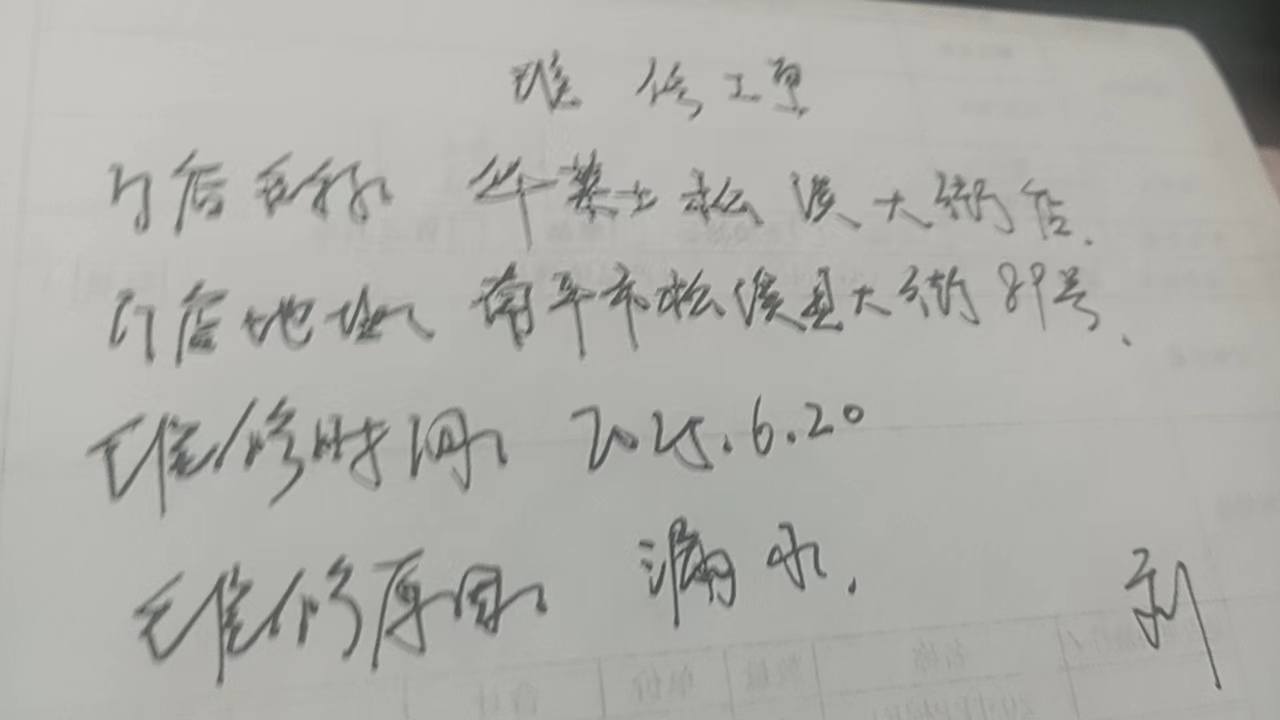 维修工单
门店名称 华莱士松溪大街店.
门店地址 南平市松溪县大街89号、
维修时间 2025.6.20
维修原因 漏水.
刘